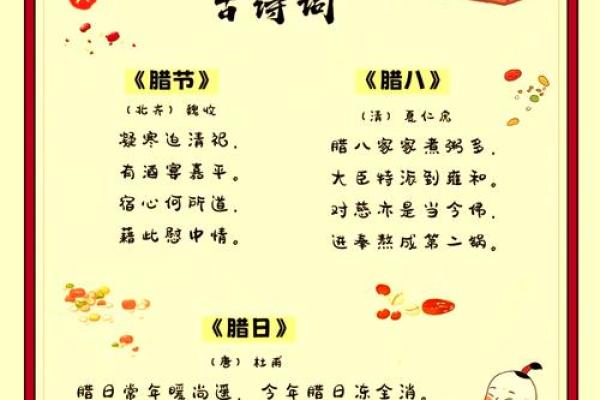 古诗词
《腊节》
（北齐）魏收
凝寒迫清祀，
有酒宴嘉平。
宿心何所道，
藉此慰中情。
《腊八》
（清）夏仁虎
腊八家家煮粥多，
大臣特派到雍和。
对慈亦是当今佛，
进奉熬成第二锅。
《腊日》
（唐）杜甫
腊日常年暖尚遥，今年腊日冻全消。